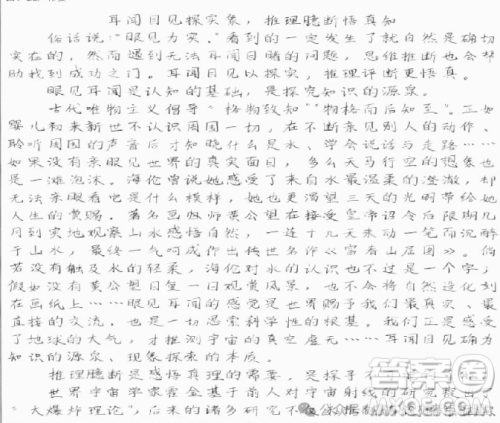 耳闻目见探实象，推理臆断悟真知
俗话说：“眼见为实。”看到的一定发生了就自然是确切
实在的，然而遇到无法耳闻目睹的问题，思维推断也会帮
助找到成功之门。耳闻目见以探实，推理评断更悟真。
眼见耳闻是认知的基础，是探究知识的源泉。
古代唯物主义倡导“格物致知”“物格而后知至”。三如
婴儿初来新世不认识周围一切，在不断亲见别人的动作、
聆听周围的声音后才知晓什么是水、学会说话与走路……
如果没有亲眼见世界的真实面目，多么天马行空的想象也
是一滩泡沫。海伦曾说她感受了来自水最温柔的澄澈，却
无法亲眼看它是什么模样，她也更渴望三天的光明带给她
人生的黄赐。著名画牧师黄公望在接受皇帝诏令后跟朔儿
月到实地观察山水感悟自然，一连十几天未动一笔而沉醉
于山水，最终一气呵成作出传世名作《富春山居图》。倘
若没有触及水的轻柔，海伦对水的认识也不过是一个字；
假如没有黄公望日复一日观黄风景，也不会将自然造化刻
在画纸上……眼见耳闻的感觉是世界赐予我们最真实、最
直接的交流，也是一切思索科学性的根基。我们正是感受
了地球的大气，才推测宇宙的真空虚无……耳闻目见确为
知识的源泉、现象探索的本质。
推理臆断是感悟真理的需要，是探寻不
世界宇宙学家霍金基于前人对宇宙射线的研究提出
“大爆炸理论”，后来的诸多研究不
答案圈